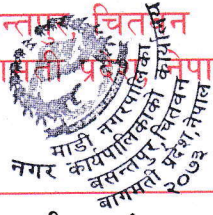 न्तपुर, चितवन
ामती प्रदेश, नेपाल
माडी नगरपालिका
नगर कार्यपालिकाको कार्यालय
बसन्तपुर, चितवन
बागमती प्रदेश, नेपाल
२०७३